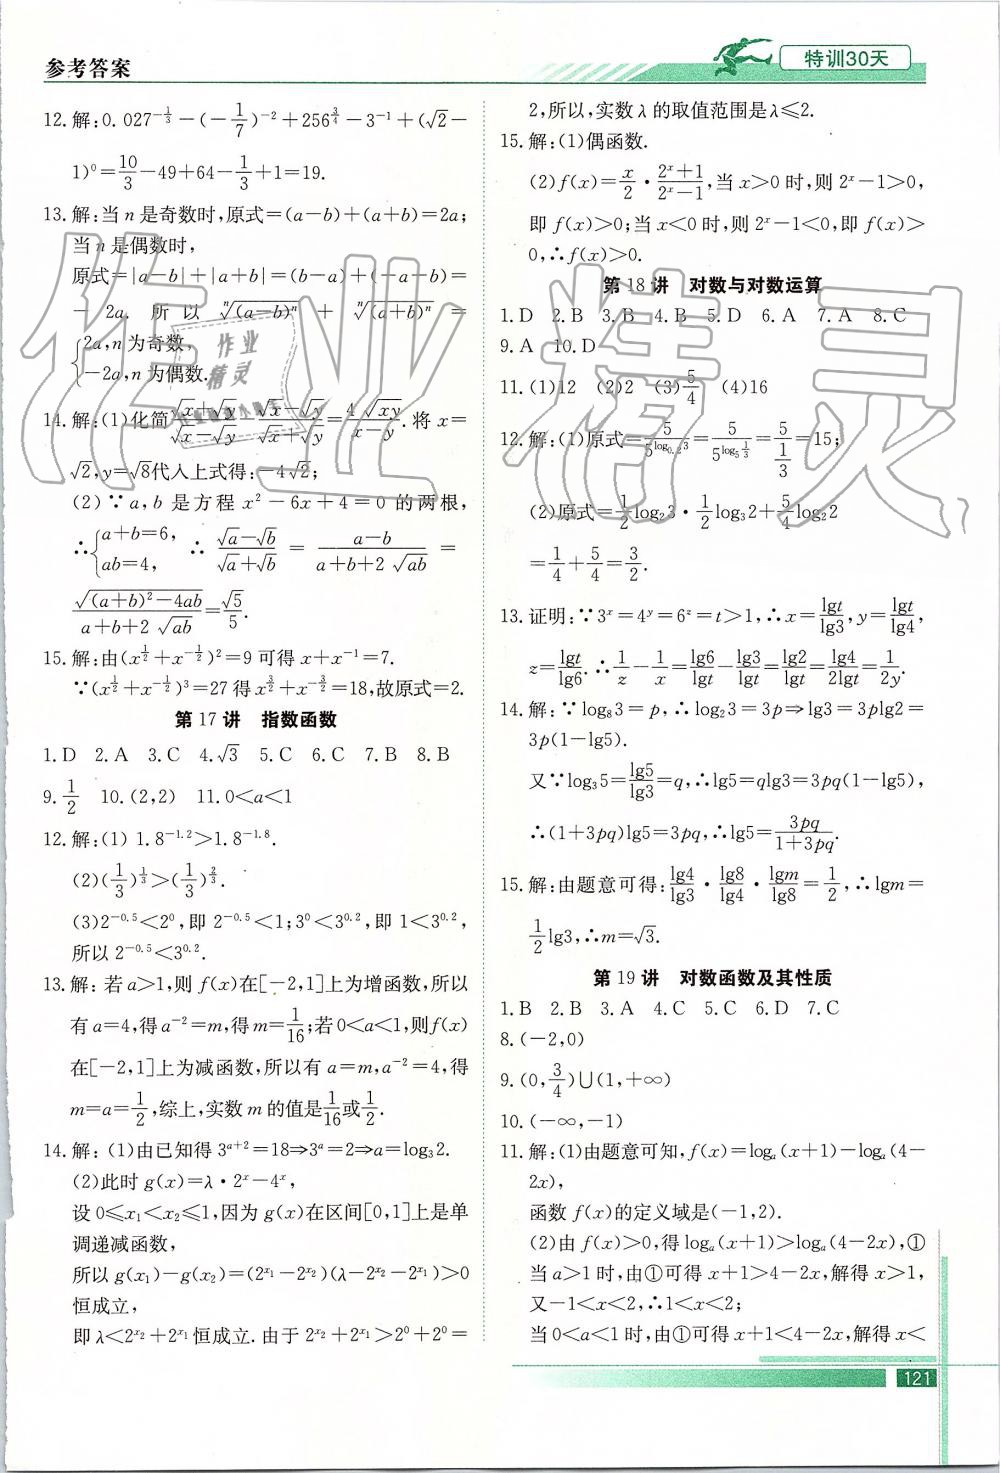 参考答案
特训30天
12.解:0.027^{-1/3}-(-1/7)^{-2}+256^{3/4}-3^{-1}+(√2-
1)^0=10/3-49+64-1/3+1=19.
13.解:当n是奇数时,原式=(a-b)+(a+b)=2a;
当n是偶数时,
原式=|a-b|+|a+b|=(b-a)+(-a-b)=
-2a. 所以 ⁿ√(a-b)ⁿ + ⁿ√(a+b)ⁿ =
{2a,n为奇数,
-2a,n为偶数.
14.解:(1)化简(√x+√y)/(√x-√y)-(√x-√y)/(√x+√y)=4√xy/(x-y).将x=
√2,y=√8代入上式得:-4√2;
(2)∵a,b是方程x²-6x+4=0的两根,
∴{a+b=6, ab=4, ∴(√a-√b)/(√a+√b)=(a-b)/(a+b+2√ab)=
√((a+b)²-4ab)/(a+b+2√ab)=√5/5.
15.解:由(x^{1/2}+x^{-1/2})²=9可得x+x^{-1}=7.
∵(x^{1/2}+x^{-1/2})³=27得x^{3/2}+x^{-3/2}=18,故原式=2.
第17讲 指数函数
1.D 2.A 3.C 4.√3 5.C 6.C 7.B 8.B
9.1/2 10.(2,2) 11.0<a<1
12.解:(1) 1.8^{-1.2}>1.8^{-1.8}.
(2)(1/3)^{1/3}>(1/3)^{2/3}.
(3)2^{-0.5}<2^0,即2^{-0.5}<1;3^0<3^{0.2},即1<3^{0.2},
所以2^{-0.5}<3^{0.2}.
13.解:若a>1,则f(x)在[-2,1]上为增函数,所以
有a=4,得a^{-2}=m,得m=1/16;若0<a<1,则f(x)
在[-2,1]上为减函数,所以有a=m,a^{-2}=4,得
m=a=1/2,综上,实数m的值是1/16或1/2.
14.解:(1)由已知得3^{a+2}=18⇒3^a=2⇒a=log₃2.
(2)此时g(x)=λ·2^x-4^x,
设0≤x₁<x₂≤1,因为g(x)在区间[0,1]上是单
调递减函数,
所以g(x₁)-g(x₂)=(2^{x₁}-2^{x₂})(λ-2^{x₂}-2^{x₁})>0
恒成立,
即λ<2^{x₂}+2^{x₁}恒成立.由于2^{x₂}+2^{x₁}>2^0+2^0=
2,所以,实数λ的取值范围是λ≤2.
15.解:(1)偶函数.
(2)f(x)=x/2·(2^x+1)/(2^x-1),当x>0时,则2^x-1>0,
即f(x)>0;当x<0时,则2^x-1<0,即f(x)>
0,∴f(x)>0.
第18讲 对数与对数运算
1.D 2.B 3.B 4.B 5.D 6.A 7.A 8.C
9.A 10.D
11.(1)12 (2)2 (3)5/4 (4)16
12.解:(1)原式=5/5^{log_{0.2}3}=5/5^{log₅1/3}=5/(1/3)=15;
(2)原式=1/2log₂3·1/2log₃2+5/4log₂2
=1/4+5/4=3/2.
13.证明:∵3^x=4^y=6^z=t>1,∴x=lgt/lg3,y=lgt/lg4,
z=lgt/lg6.∴1/z-1/x=lg6/lgt-lg3/lgt=lg2/lgt=lg4/2lgt=1/2y.
14.解:∵log₈3=p,∴log₂3=3p⇒lg3=3plg2=
3p(1-lg5).
又∵log₃5=lg5/lg3=q,∴lg5=qlg3=3pq(1-lg5),
∴(1+3pq)lg5=3pq,∴lg5=3pq/(1+3pq).
15.解:由题意可得:lg4/lg3·lg8/lg4·lgm/lg8=1/2,∴lgm=
1/2lg3,∴m=√3.
第19讲 对数函数及其性质
1.B 2.B 3.A 4.C 5.C 6.D 7.C
8.(-2,0)
9.(0,3/4)∪(1,+∞)
10.(-∞,-1)
11.解:(1)由题意可知,f(x)=logₐ(x+1)-logₐ(4-
2x),
函数f(x)的定义域是(-1,2).
(2)由f(x)>0,得logₐ(x+1)>logₐ(4-2x),①
当a>1时,由①可得x+1>4-2x,解得x>1,
又-1<x<2,∴1<x<2;
当0<a<1时,由①可得x+1<4-2x,解得x<
121
作业精灵
作业
精灵